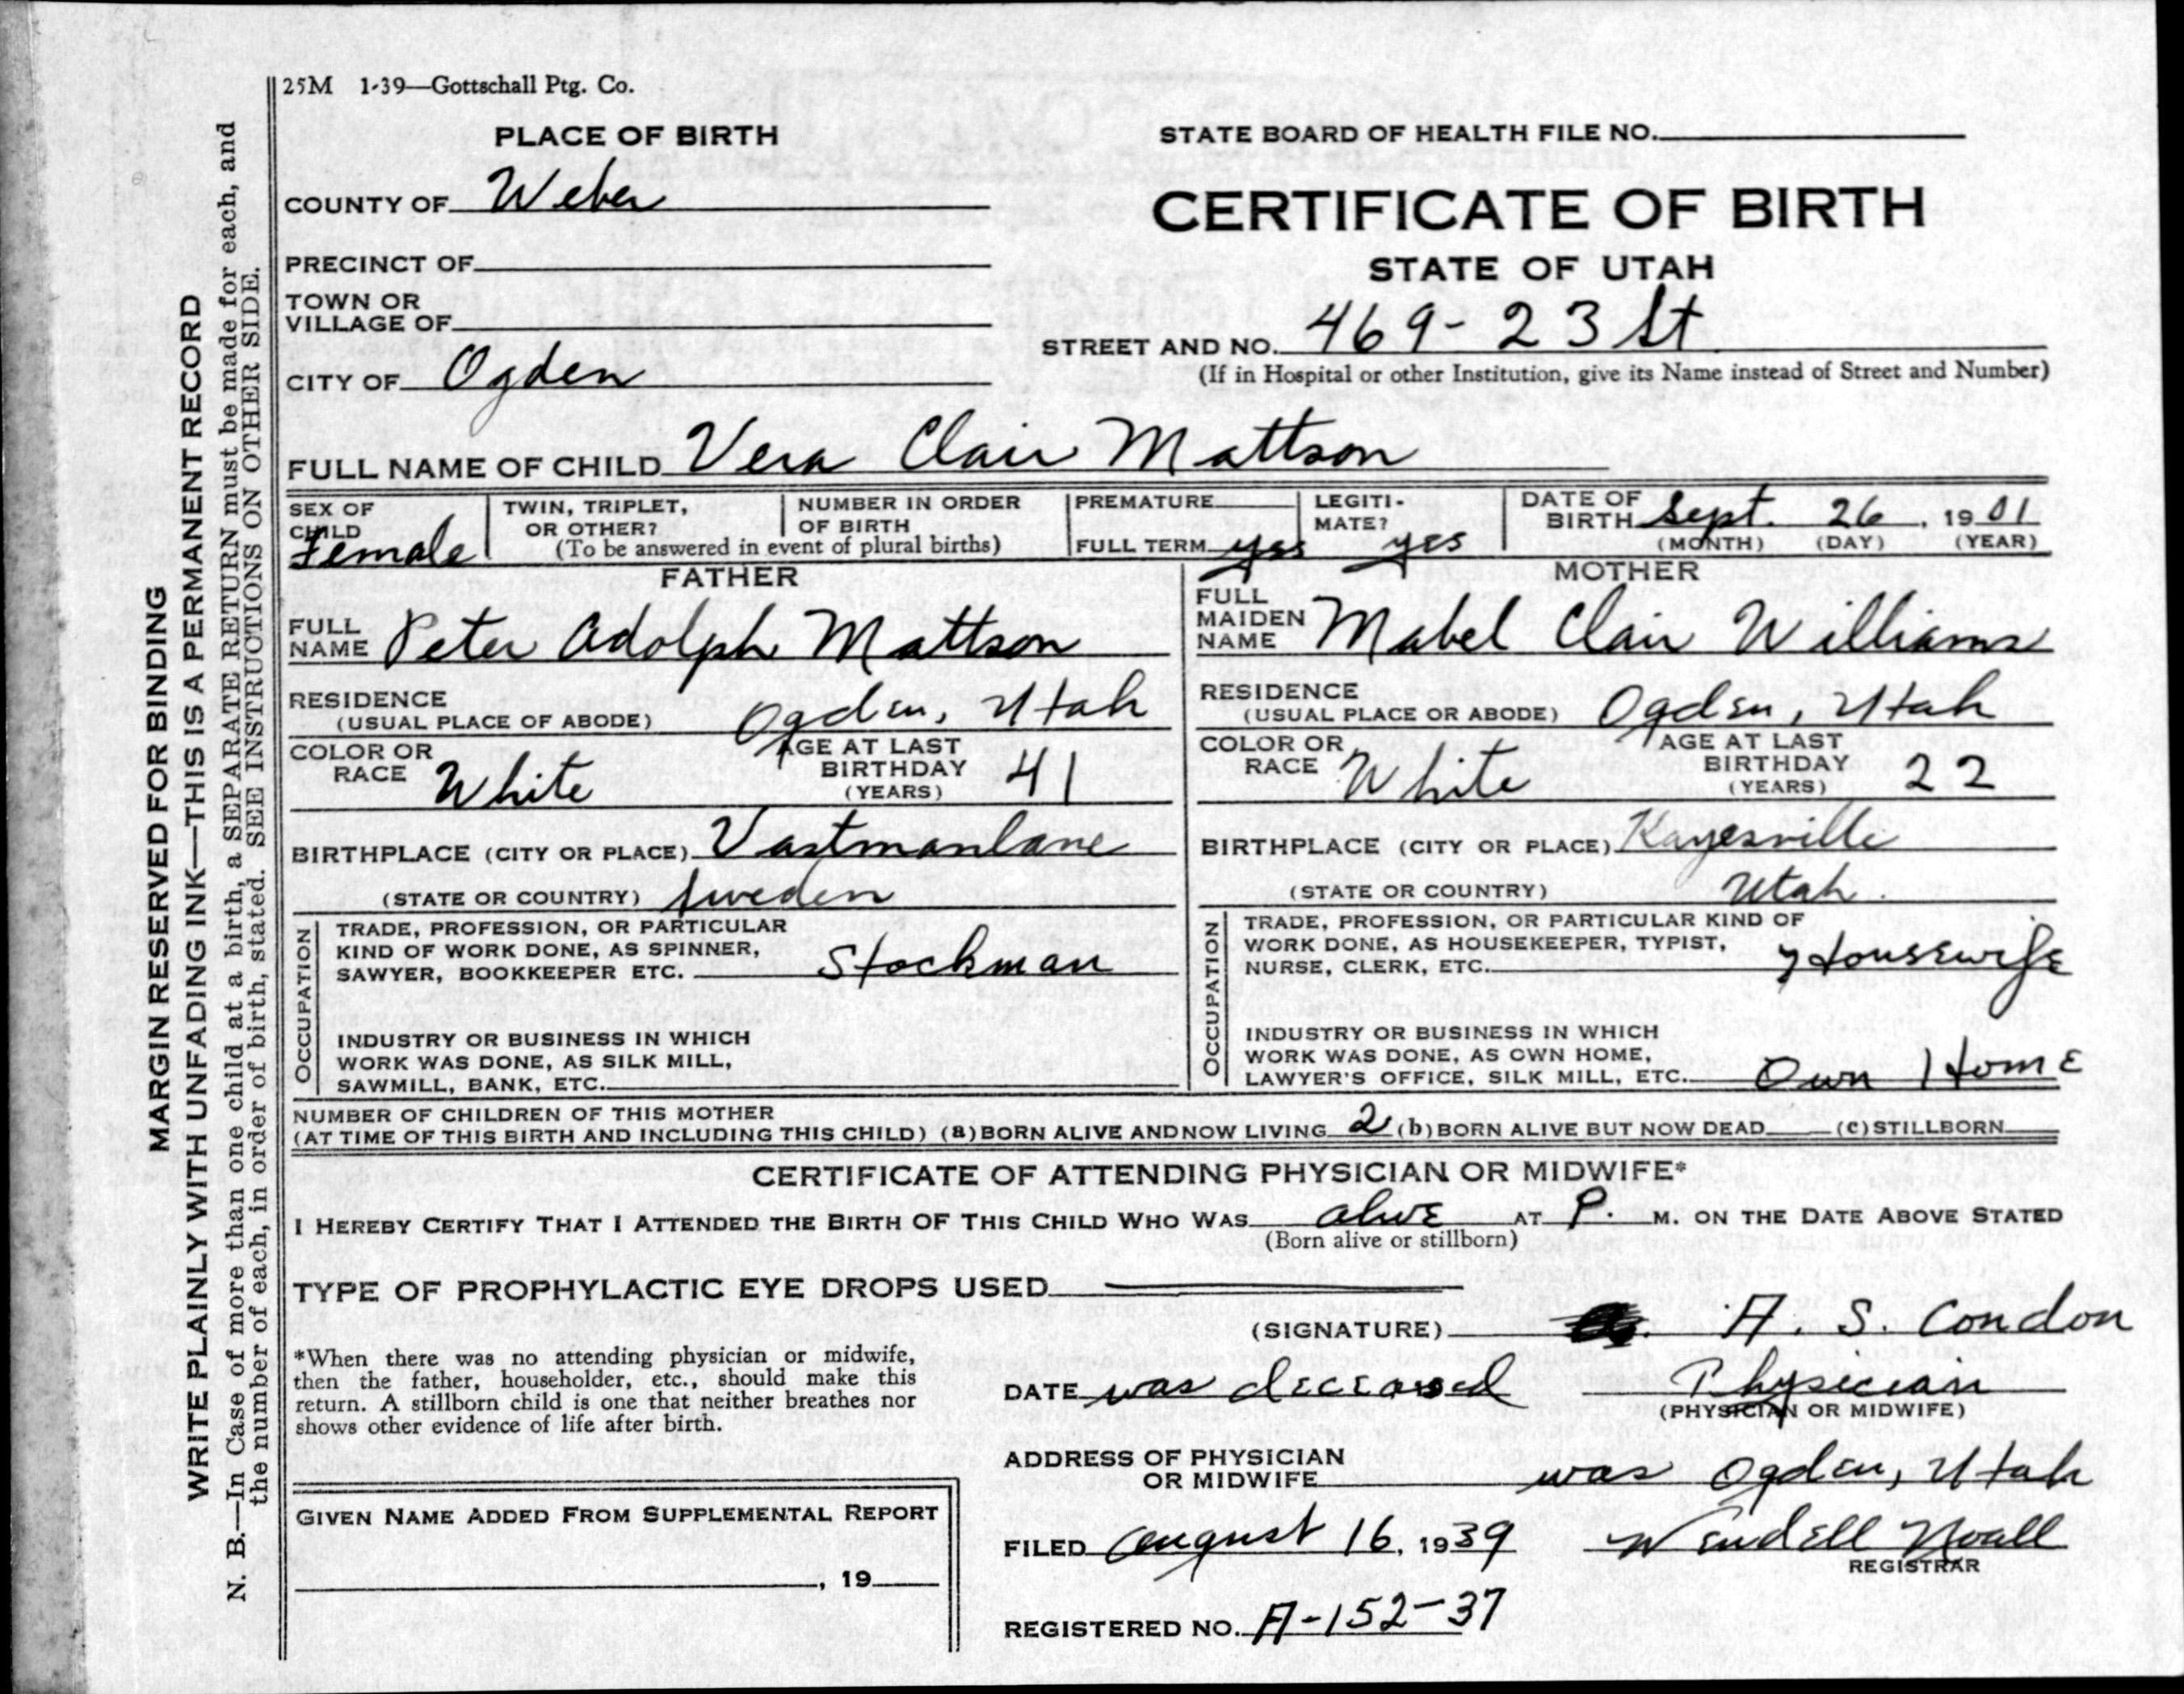 25M 1-39—Gottschall Ptg. Co.
PLACE OF BIRTH
STATE BOARD OF HEALTH FILE NO.
COUNTY OF Weber
CERTIFICATE OF BIRTH
PRECINCT OF
STATE OF UTAH
TOWN OR
VILLAGE OF
STREET AND NO. 469-23 St
CITY OF Ogden
(If in Hospital or other Institution, give its Name instead of Street and Number)
FULL NAME OF CHILD Vera Clair Mattson
SEX OF CHILD Female
TWIN, TRIPLET, OR OTHER?
NUMBER IN ORDER OF BIRTH
(To be answered in event of plural births)
PREMATURE
FULL TERM yes
LEGITI-
MATE? yes
DATE OF BIRTH Sept. 26, 1901
(MONTH) (DAY) (YEAR)
FATHER
FULL NAME Peter Adolph Mattson
RESIDENCE
(USUAL PLACE OF ABODE) Ogden, Utah
COLOR OR RACE White
AGE AT LAST BIRTHDAY (YEARS) 41
BIRTHPLACE (CITY OR PLACE) Vastmanlane
(STATE OR COUNTRY) Sweden
OCCUPATION
TRADE, PROFESSION, OR PARTICULAR
KIND OF WORK DONE, AS SPINNER,
SAWYER, BOOKKEEPER ETC. Stockman
INDUSTRY OR BUSINESS IN WHICH
WORK WAS DONE, AS SILK MILL,
SAWMILL, BANK, ETC.
MOTHER
FULL MAIDEN NAME Mabel Clair Williams
RESIDENCE
(USUAL PLACE OR ABODE) Ogden, Utah
COLOR OR RACE White
AGE AT LAST BIRTHDAY (YEARS) 22
BIRTHPLACE (CITY OR PLACE) Kayesville
(STATE OR COUNTRY) Utah.
OCCUPATION
TRADE, PROFESSION, OR PARTICULAR KIND OF
WORK DONE, AS HOUSEKEEPER, TYPIST,
NURSE, CLERK, ETC. Housewife
INDUSTRY OR BUSINESS IN WHICH
WORK WAS DONE, AS OWN HOME,
LAWYER'S OFFICE, SILK MILL, ETC. Own Home
NUMBER OF CHILDREN OF THIS MOTHER
(AT TIME OF THIS BIRTH AND INCLUDING THIS CHILD) (a) BORN ALIVE AND NOW LIVING 2 (b) BORN ALIVE BUT NOW DEAD (c) STILLBORN
CERTIFICATE OF ATTENDING PHYSICIAN OR MIDWIFE*
I HEREBY CERTIFY THAT I ATTENDED THE BIRTH OF THIS CHILD WHO WAS alive AT P. M. ON THE DATE ABOVE STATED
(Born alive or stillborn)
TYPE OF PROPHYLACTIC EYE DROPS USED
(SIGNATURE) A. S. Condon
*When there was no attending physician or midwife,
then the father, householder, etc., should make this
return. A stillborn child is one that neither breathes nor
shows other evidence of life after birth.
DATE was deceased Physician
(PHYSICIAN OR MIDWIFE)
ADDRESS OF PHYSICIAN
OR MIDWIFE was Ogden, Utah
GIVEN NAME ADDED FROM SUPPLEMENTAL REPORT
, 19
FILED August 16, 1939 Wendell Noall
REGISTRAR
REGISTERED NO. A-152-37
MARGIN RESERVED FOR BINDING
WRITE PLAINLY WITH UNFADING INK—THIS IS A PERMANENT RECORD
N. B.—In Case of more than one child at a birth, a SEPARATE RETURN must be made for each, and
the number of each, in order of birth, stated. SEE INSTRUCTIONS ON OTHER SIDE.